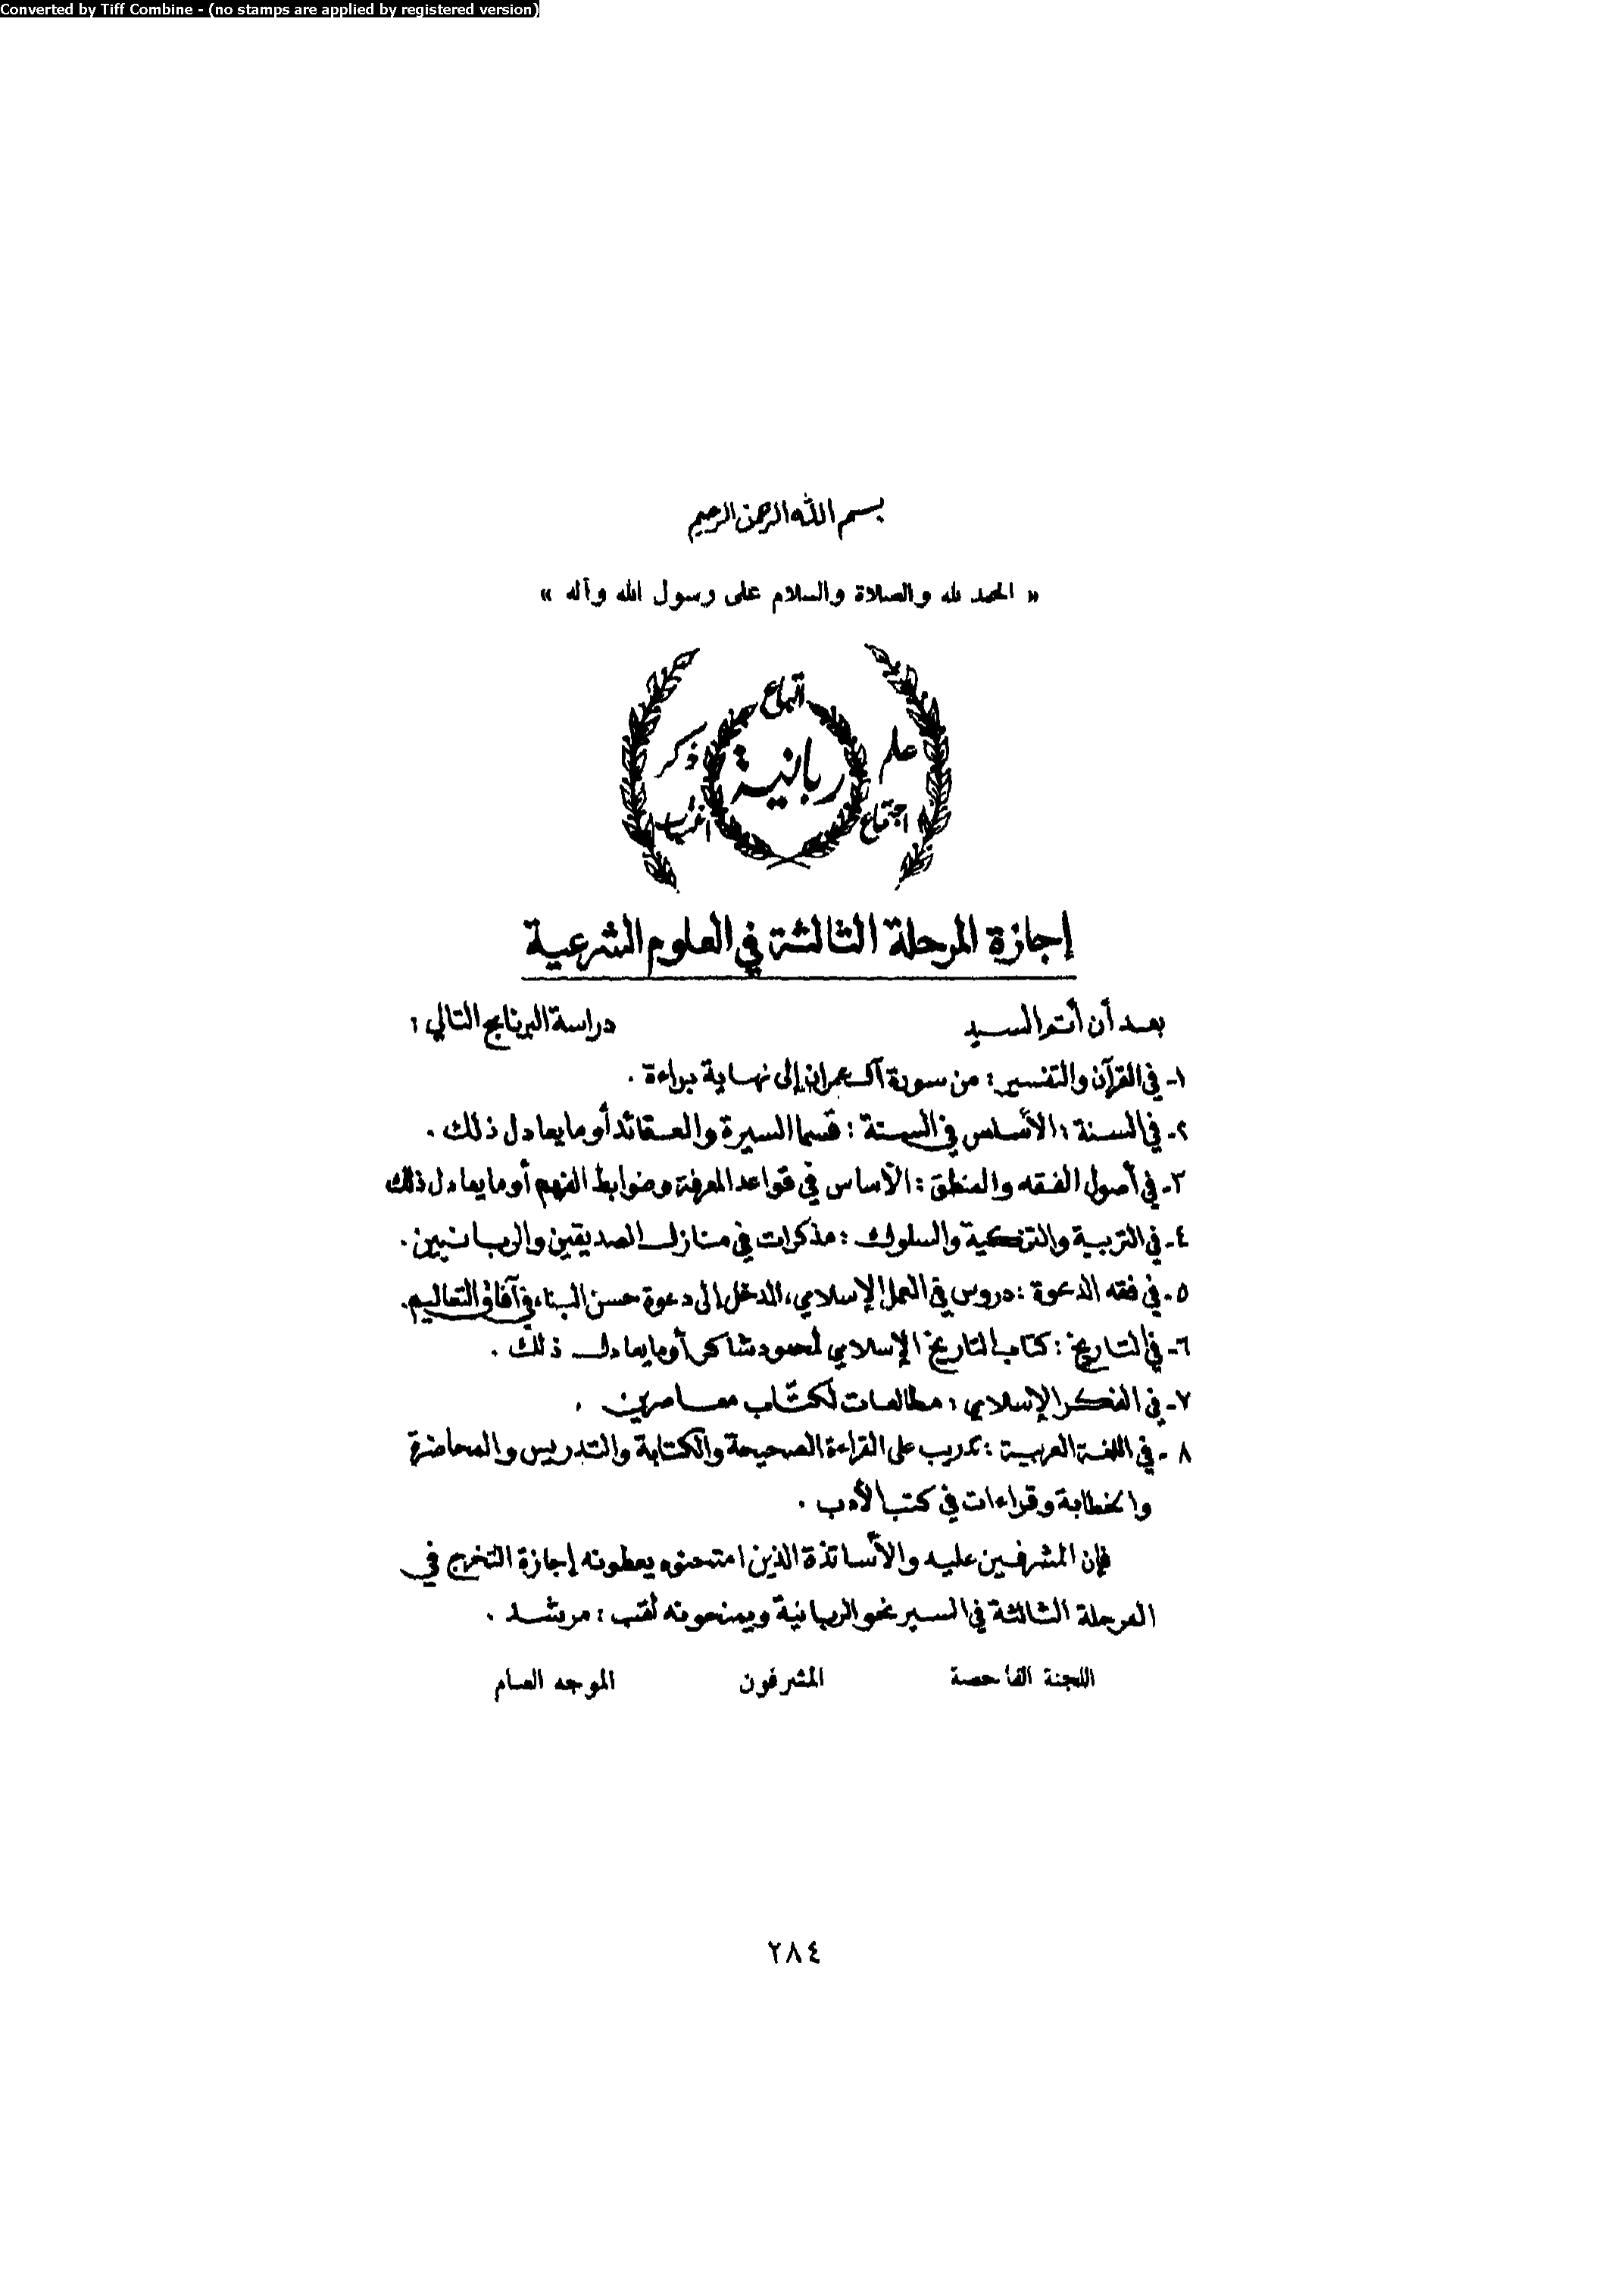 Converted by Tiff Combine - (no stamps are applied by registered version)
بسم الله الرحمن الرحيم
« الحمد لله والصلاة والسلام على رسول الله وآله »
اتباع
علم
ذكر
ربانية
اجتماع
إجازة المرحلة الثالثة في العلوم الشرعية
بعد أن أتم السيد دراسة البرنامج التالي :
١- في القرآن والتفسير : من سورة آل عمران إلى نهاية براءة .
٢- في السنة : الأساس في السنة : قسما السيرة والعقائد أو ما يعادل ذلك .
٣- في أصول الفقه والمنطق : الأساس في قواعد المعرفة وضوابط الفهم أو ما يعادل ذلك
٤- في التربية والتزكية والسلوك : مذكرات في منازل الصديقين والربانيين .
٥- في فقه الدعوة : دروس في العمل الإسلامي، المدخل إلى دعوة حسن البناء، في آفاق التعاليم.
٦- في التاريخ : كتاب التاريخ الإسلامي لمحمود شاكر أو ما يعادل ذلك .
٧- في الفكر الإسلامي : مطالعات لكتّاب معاصرين .
٨ - في اللغة العربية : تدريب على القراءة الصحيحة والكتابة والتدريس والمحاضرة
والخطابة وقراءات في كتب الأدب .
فإن المشرفين عليه والأساتذة الذين امتحنوه يعطونه إجازة التخرج في
المرحلة الثالثة في السير نحو الربانية ويمنحونه لقب : مرشد .
اللجنة الفاحصة المشرفون الموجه العام
٢٨٤